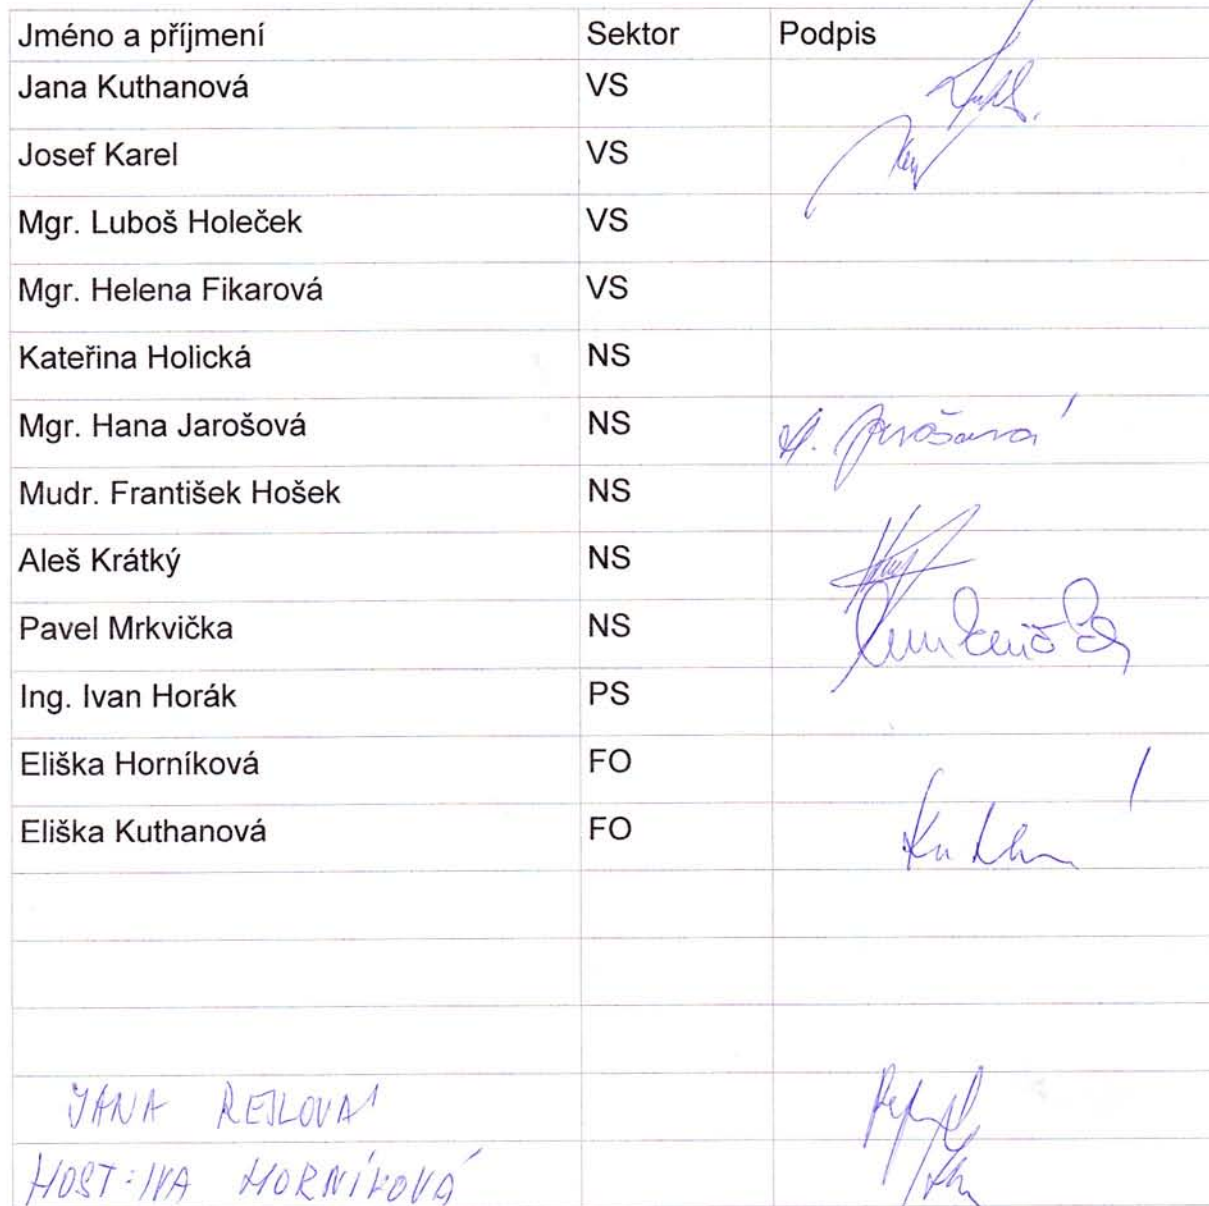 Jméno a příjmení Sektor Podpis
Jana Kuthanová VS
Josef Karel VS
Mgr. Luboš Holeček VS
Mgr. Helena Fikarová VS
Kateřina Holická NS
Mgr. Hana Jarošová NS H. Jarošová
Mudr. František Hošek NS
Aleš Krátký NS
Pavel Mrkvička NS
Ing. Ivan Horák PS
Eliška Horníková FO
Eliška Kuthanová FO
JANA REJLOVÁ
HOST: IVA HORNÍKOVÁ